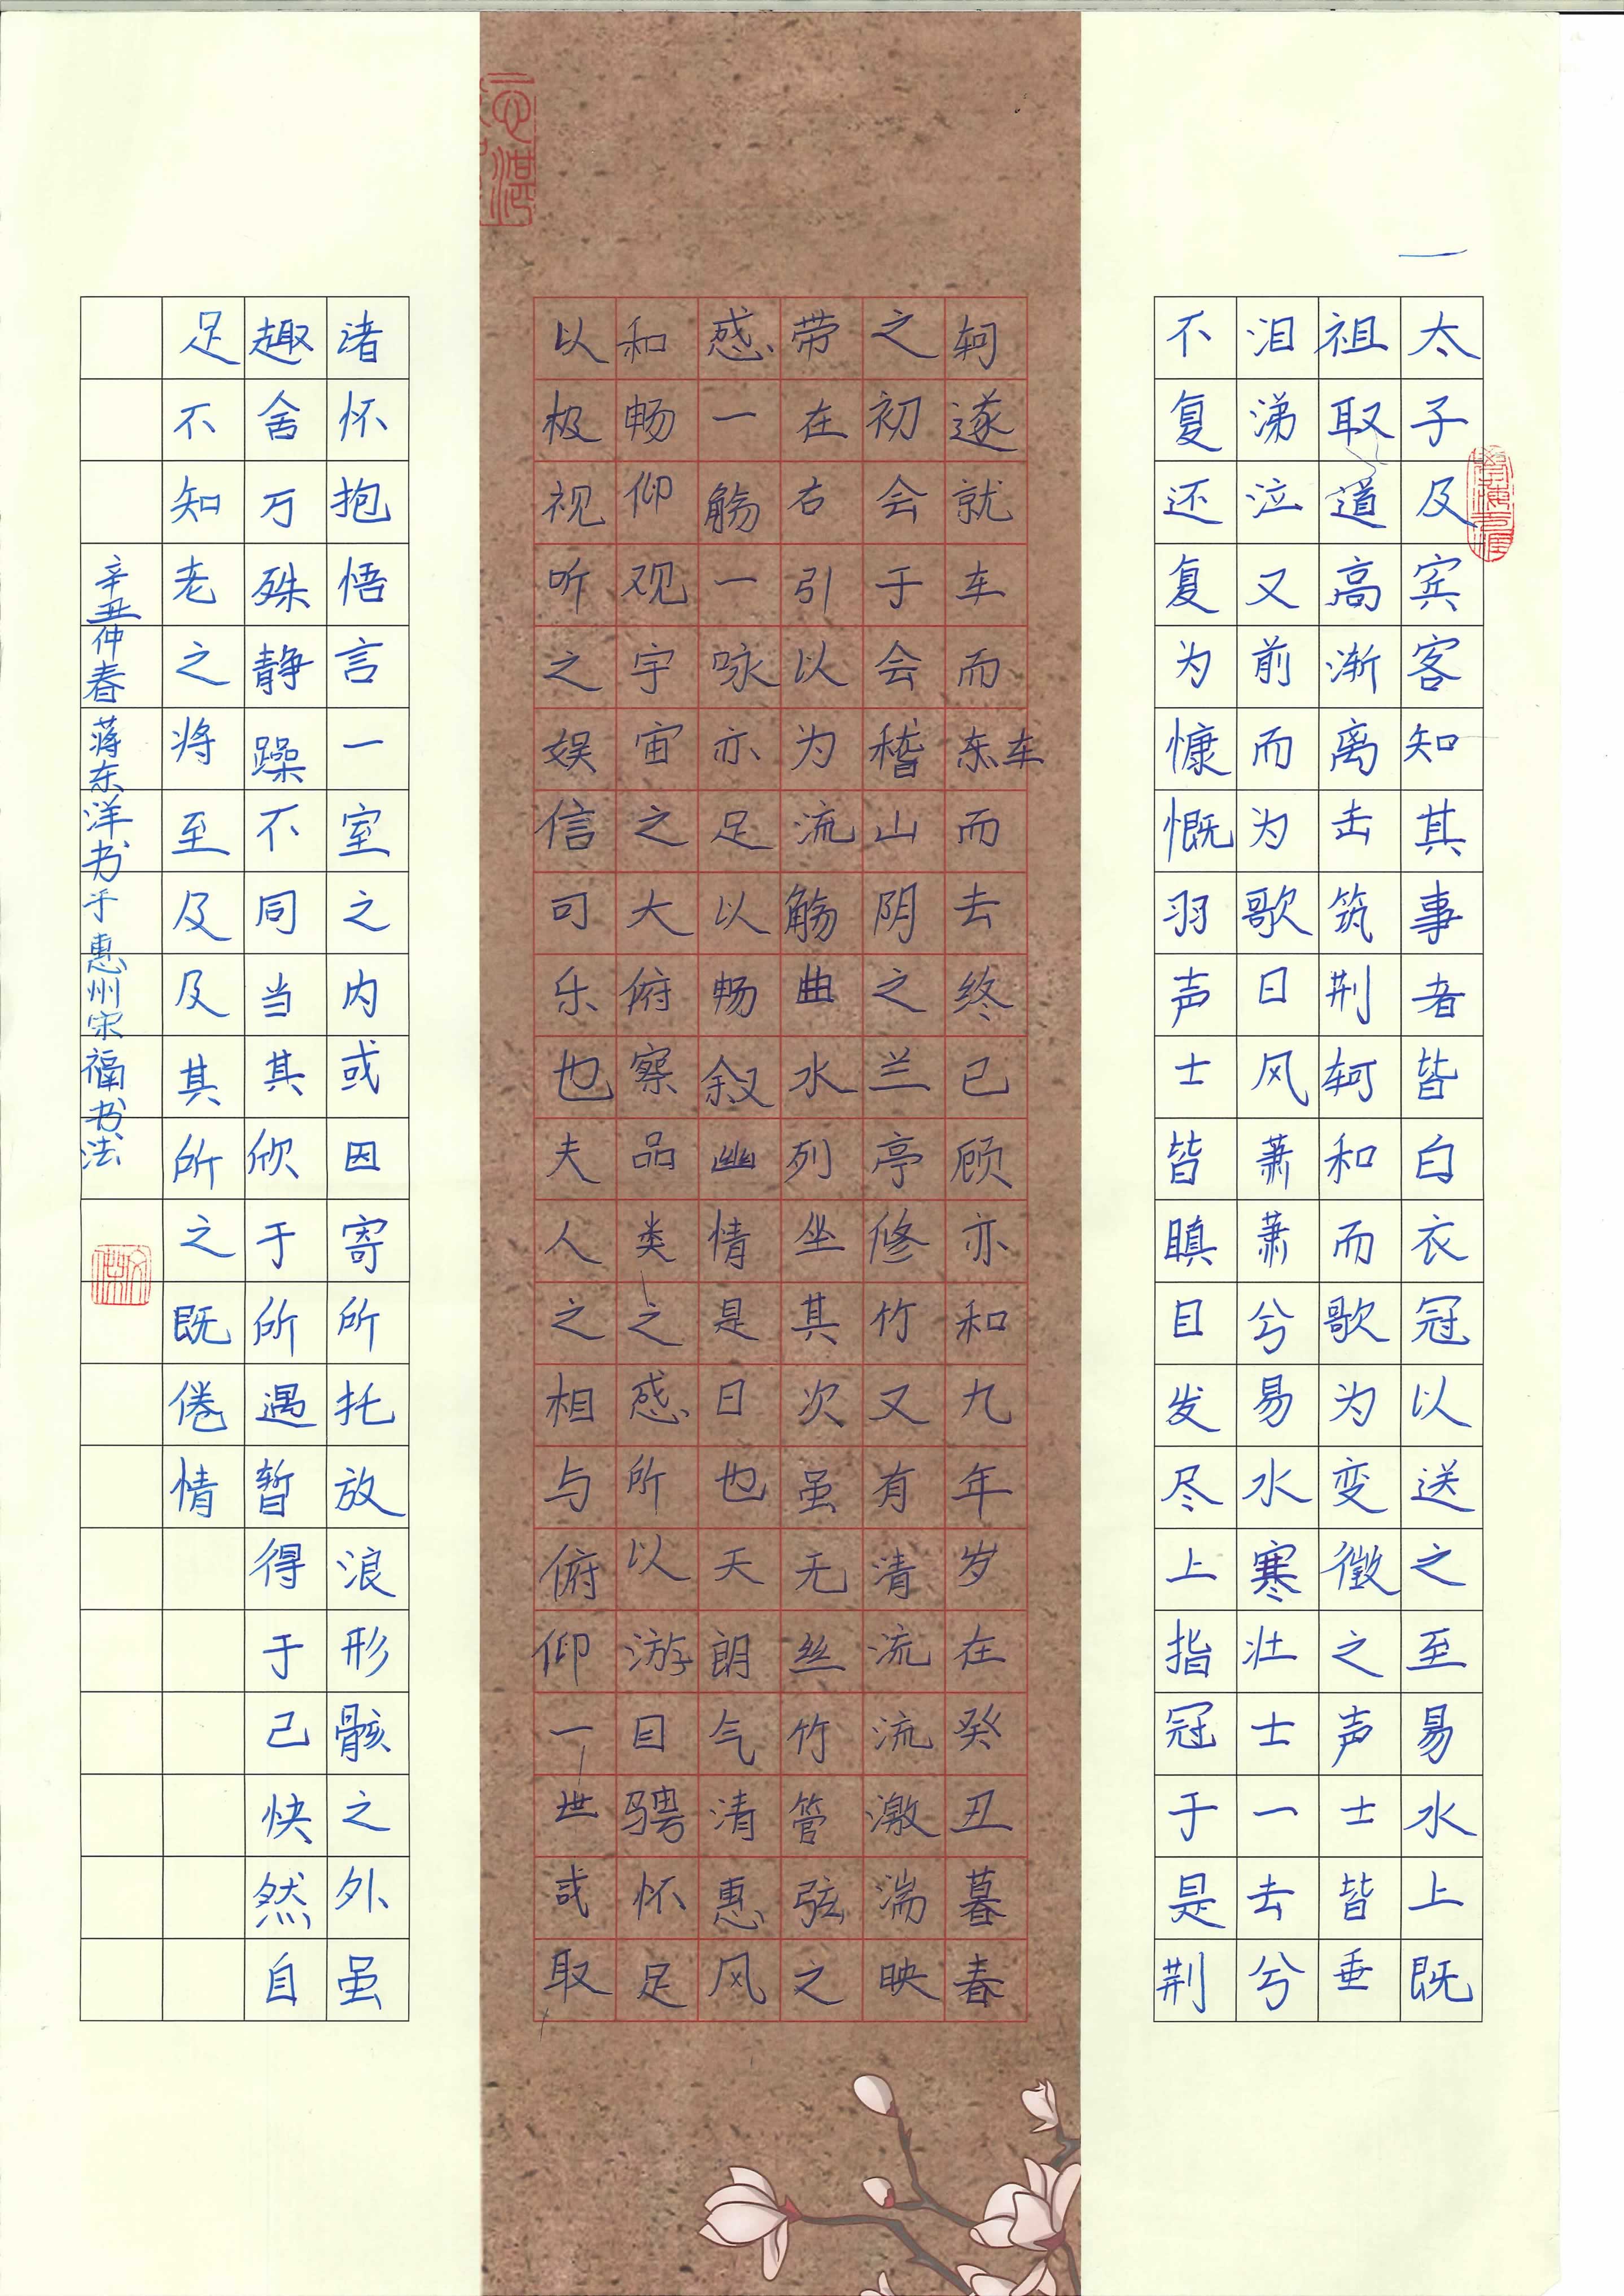 太子及宾客知其事者皆白衣冠以送之至易水上既
祖取道高渐离击筑荆轲和而歌为变徵之声士皆垂
泪涕泣又前而为歌曰风萧萧兮易水寒壮士一去兮
不复还复为慷慨羽声士皆瞋目发尽上指冠于是荆
轲遂就车而东车而去终已顾亦和九年岁在癸丑暮春
之初会于会稽山阴之兰亭修竹又有清流流激湍映
带在右引以为流觞曲水列坐其次虽无丝竹管弦之
惑一觞一咏亦足以畅叙幽情是日也天朗气清惠风
和畅仰观宇宙之大俯察品类之惑所以游目骋怀足
以极视听之娱信可乐也夫人之相与俯仰一世或取
诸怀抱悟言一室之内或因寄所托放浪形骸之外虽
趣舍万殊静躁不同当其欣于所遇暂得于己快然自
足不知老之将至及及其所之既倦情
辛丑仲春蒋东洋书于惠州宋福书法